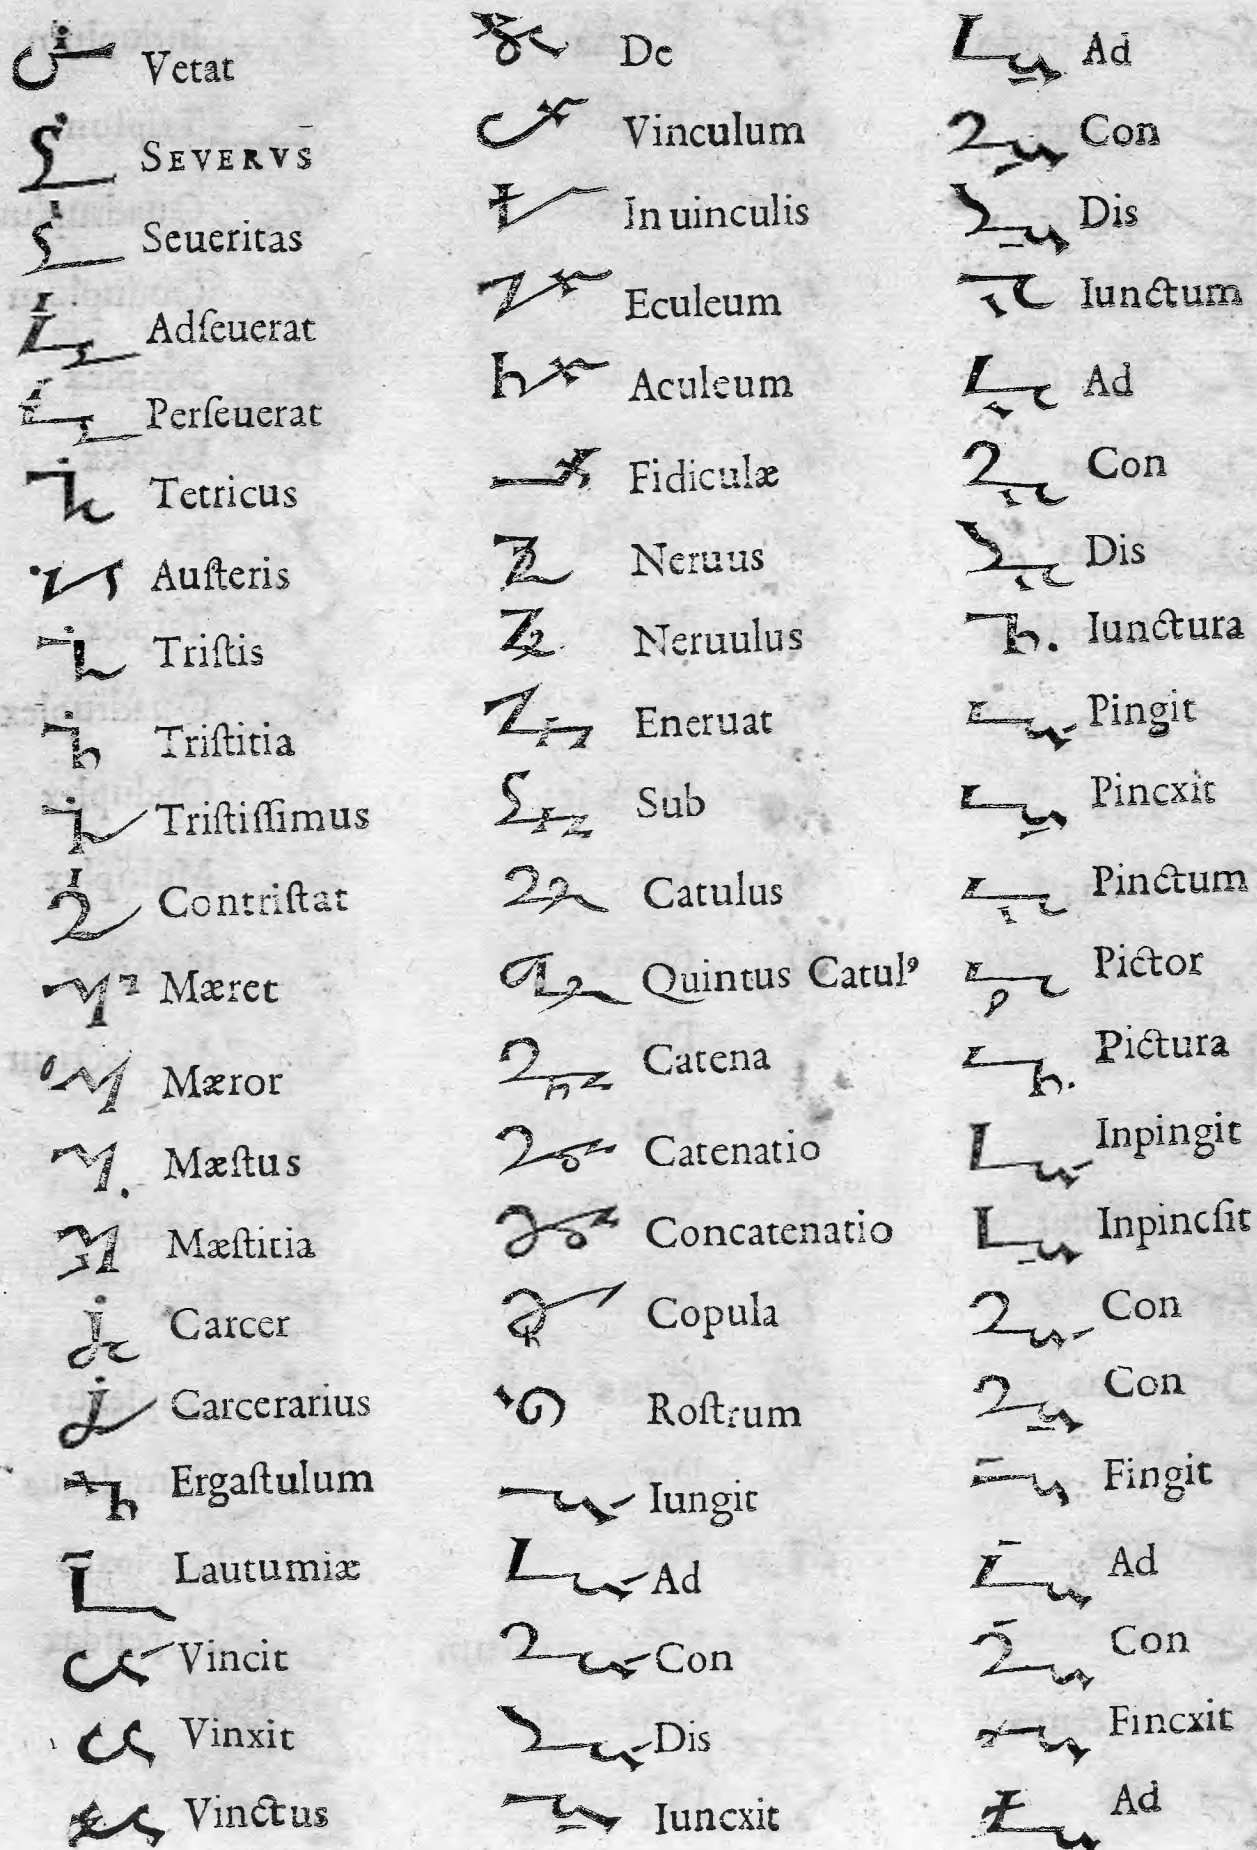 Vetat
SEVERVS
Seueritas
Adſeuerat
Perſeuerat
Tetricus
Auſteris
Triſtis
Triſtitia
Triſtiſſimus
Contriſtat
Mæret
Mæror
Mæſtus
Mæſtitia
Carcer
Carcerarius
Ergaſtulum
Lautumiæ
Vincit
Vinxit
Vinctus
De
Vinculum
In uinculis
Eculeum
Aculeum
Fidiculæ
Neruus
Neruulus
Eneruat
Sub
Catulus
Quintus Catulꝰ
Catena
Catenatio
Concatenatio
Copula
Roſtrum
Iungit
Ad
Con
Dis
Iuncxit
Ad
Con
Dis
Iunctum
Ad
Con
Dis
Iunctura
Pingit
Pincxit
Pinctum
Pictor
Pictura
Inpingit
Inpincſit
Con
Con
Fingit
Ad
Con
Fincxit
Ad